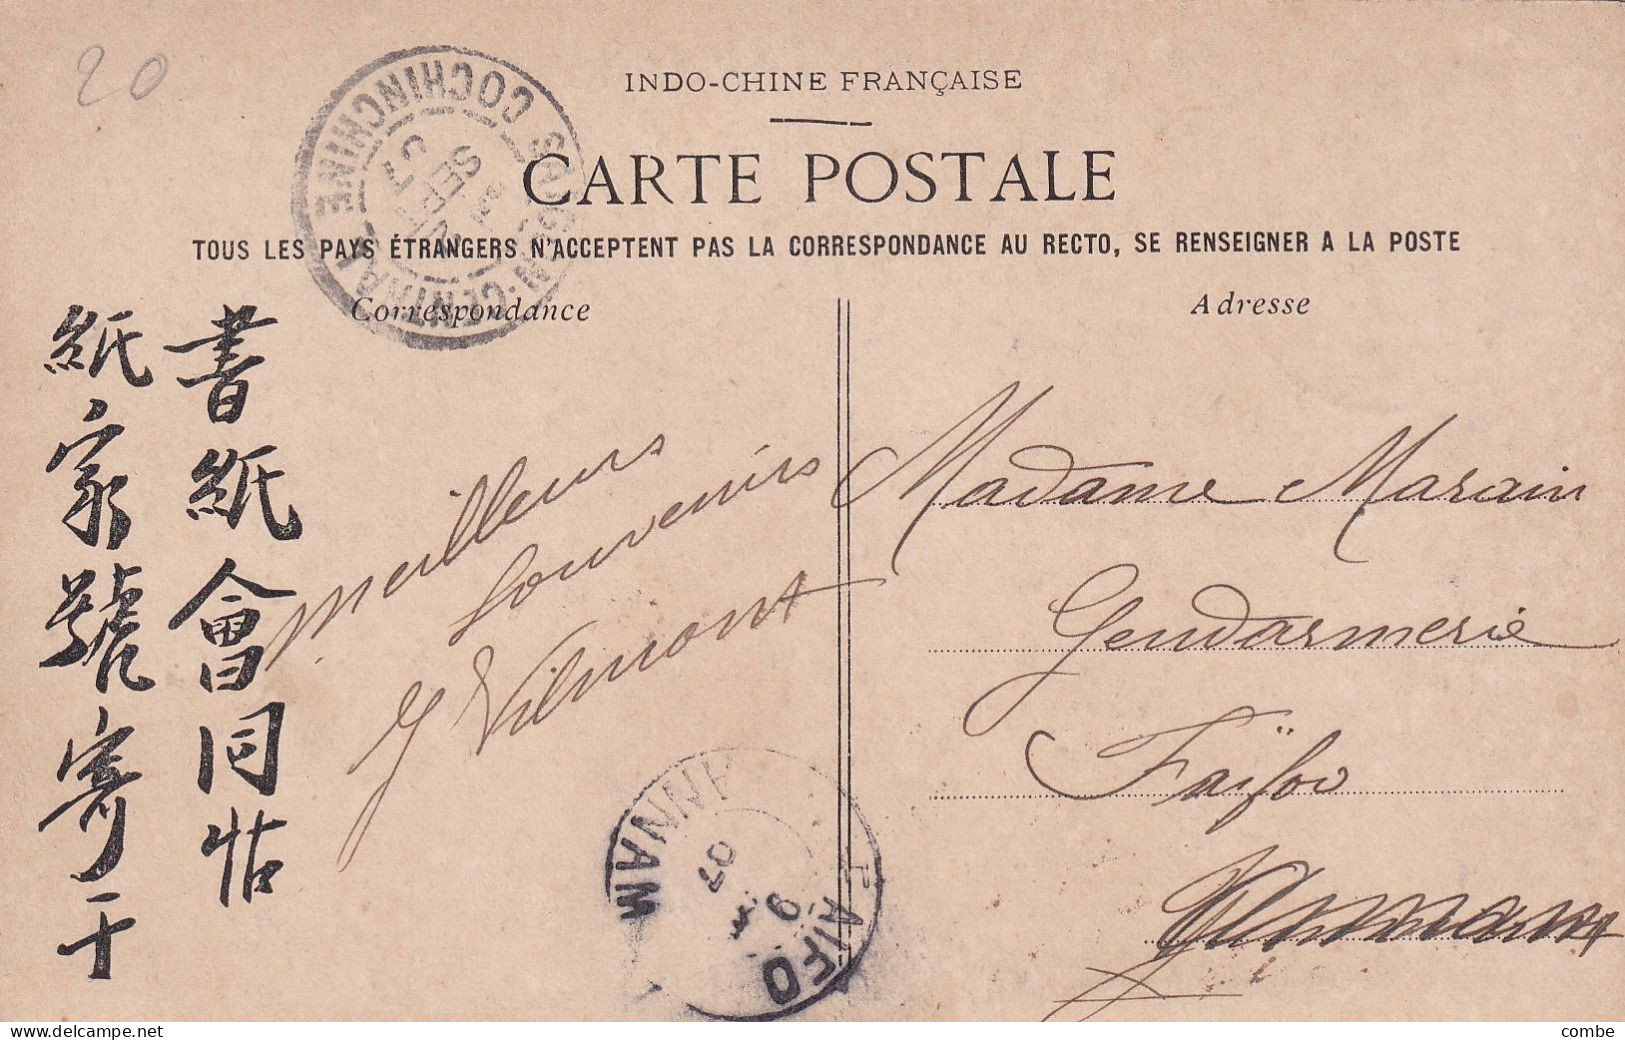 20
INDO-CHINE FRANÇAISE
CARTE POSTALE
TOUS LES PAYS ÉTRANGERS N'ACCEPTENT PAS LA CORRESPONDANCE AU RECTO, SE RENSEIGNER A LA POSTE
Correspondance
Adresse
COCHINCHINE
SEPT
07
書紙會同帖
紙家號寄于
Meilleurs
souvenirs
Vilmont
Madame Marain
Gendarmerie
Faïfoo
FAIFO
ANNAM
07
delcampe.net
combe